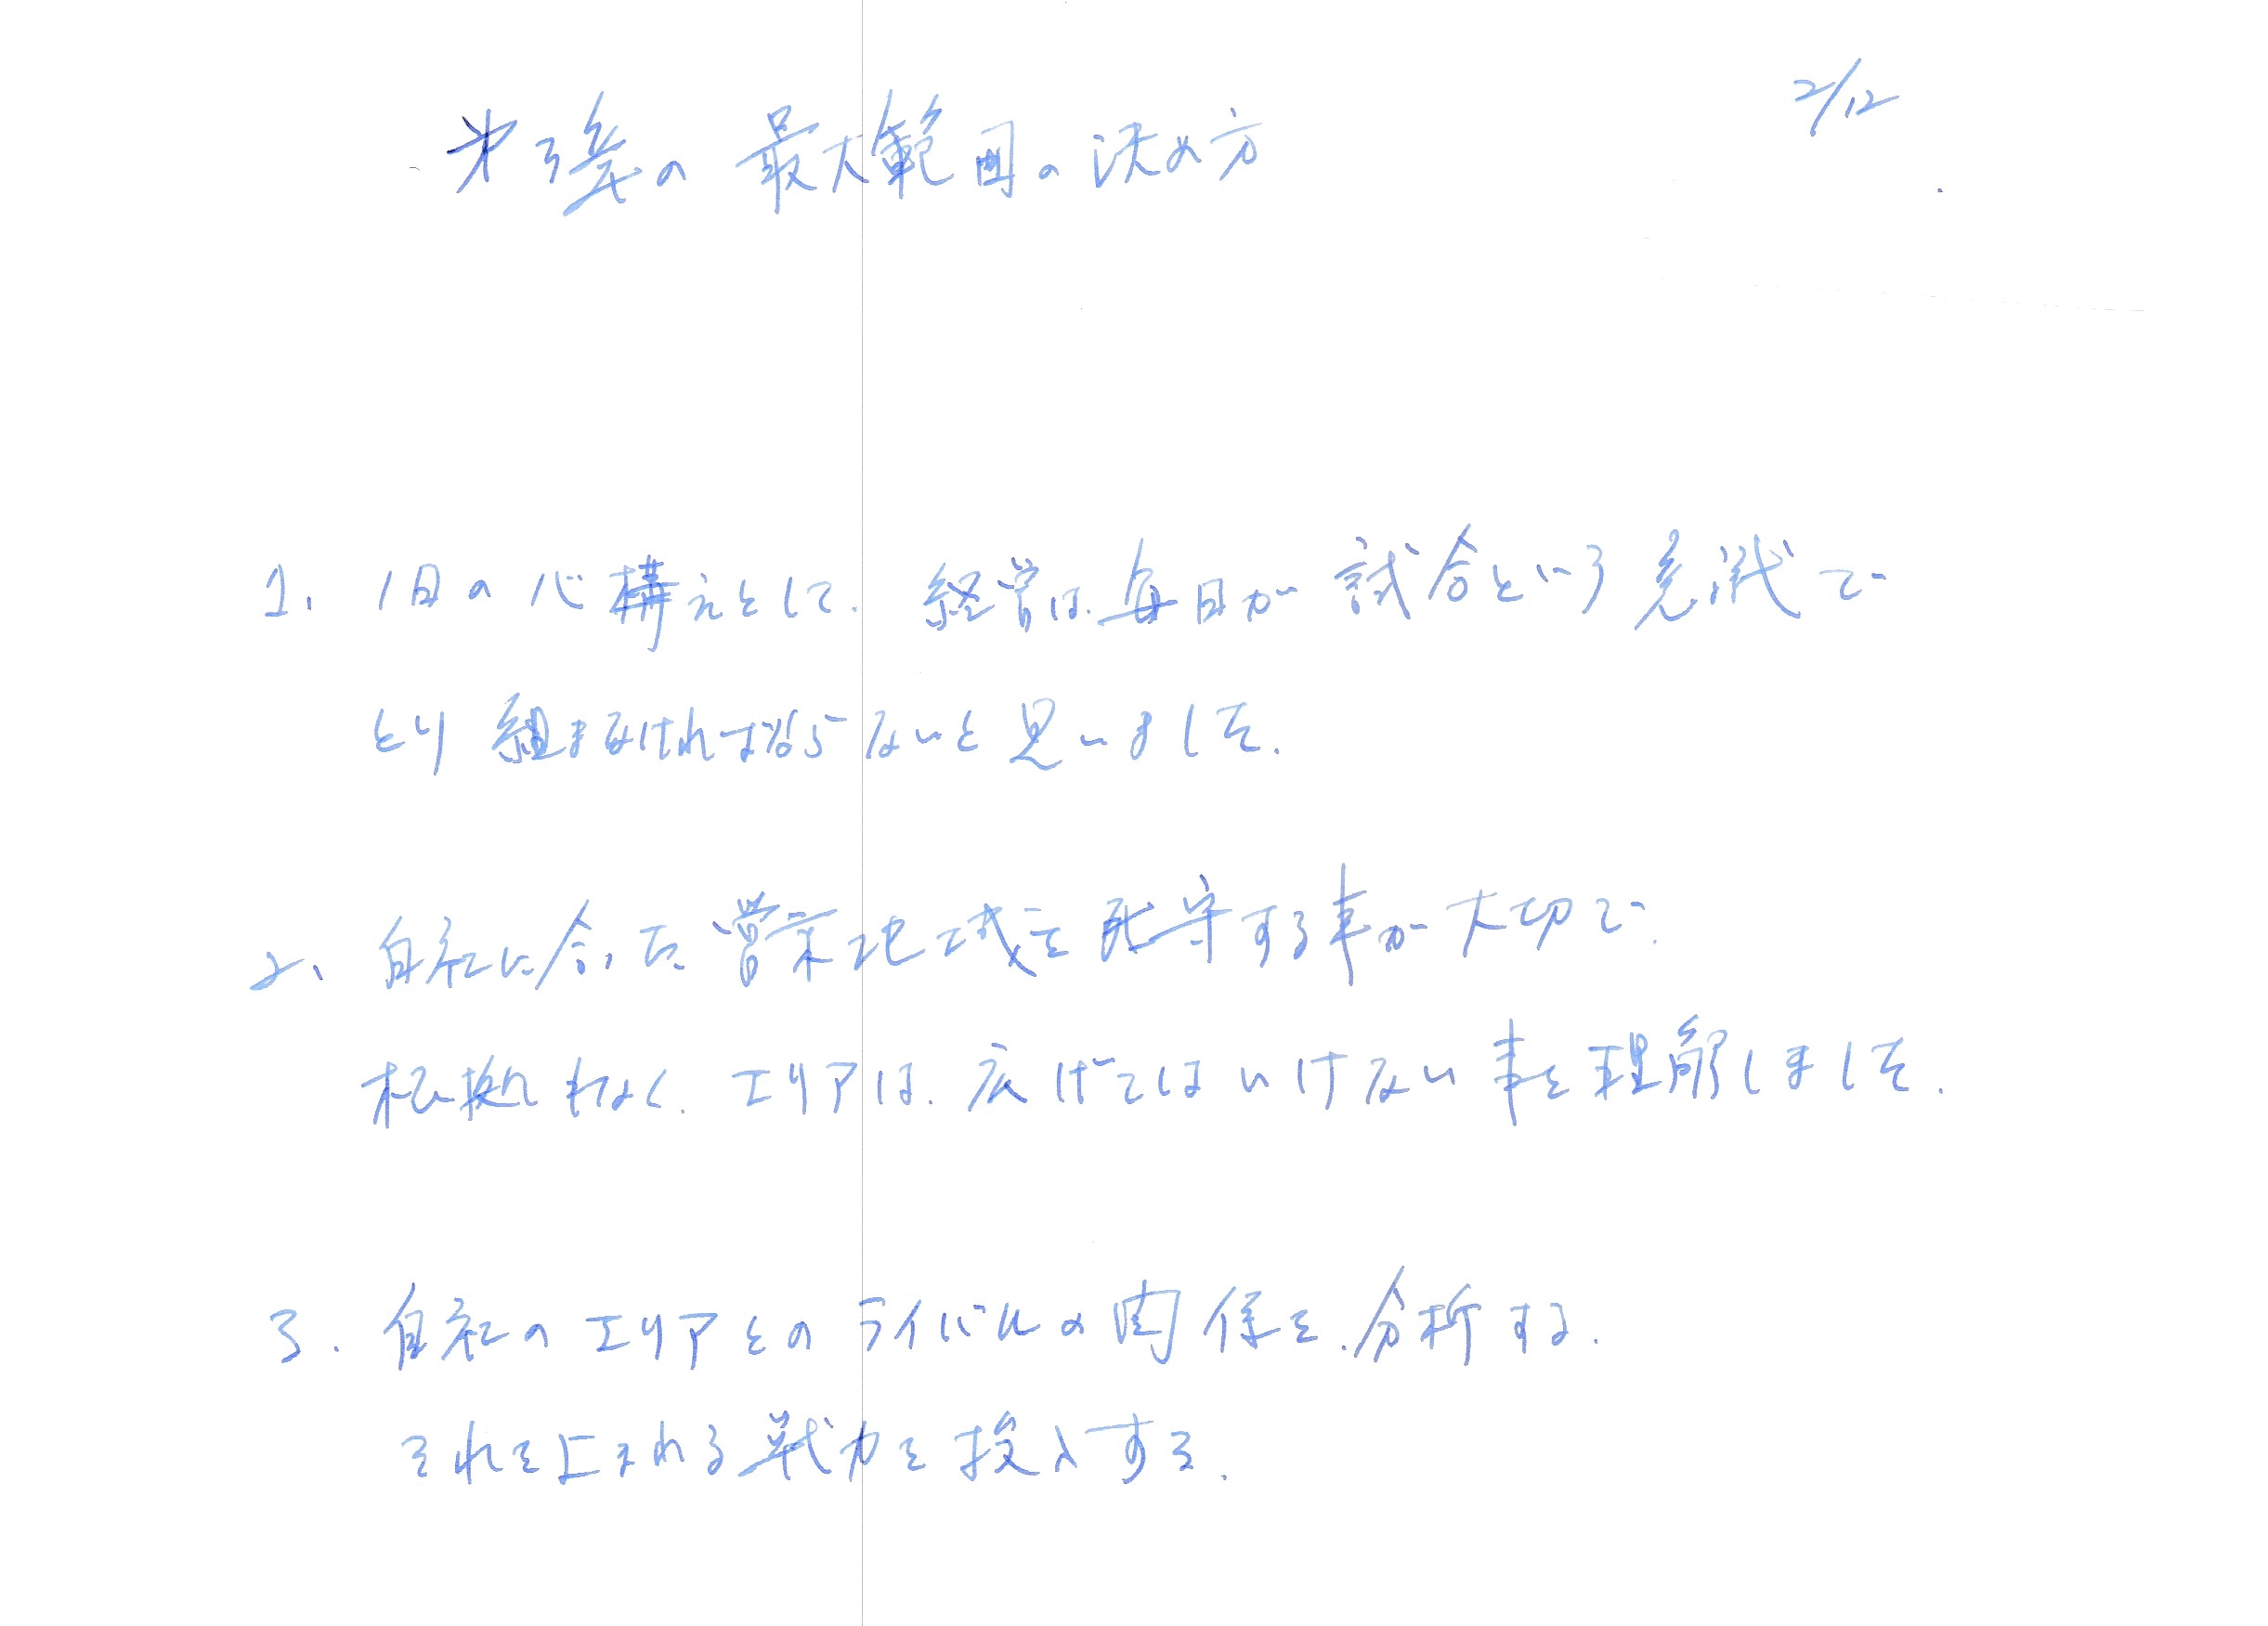 2/12
第3章の最大範囲の決め方
1. 1日の心構えとして. 経営は.毎日が試合という意識で
とり組まなければならないと思いました.
2. 自社に合った営業地域を死守する事が大切で.
根拠もなく.エリアは.広げてはいけない事を理解しました.
3. 自社のエリアとのライバルの関係を.分析する.
それを上まわる戦力を投入する.